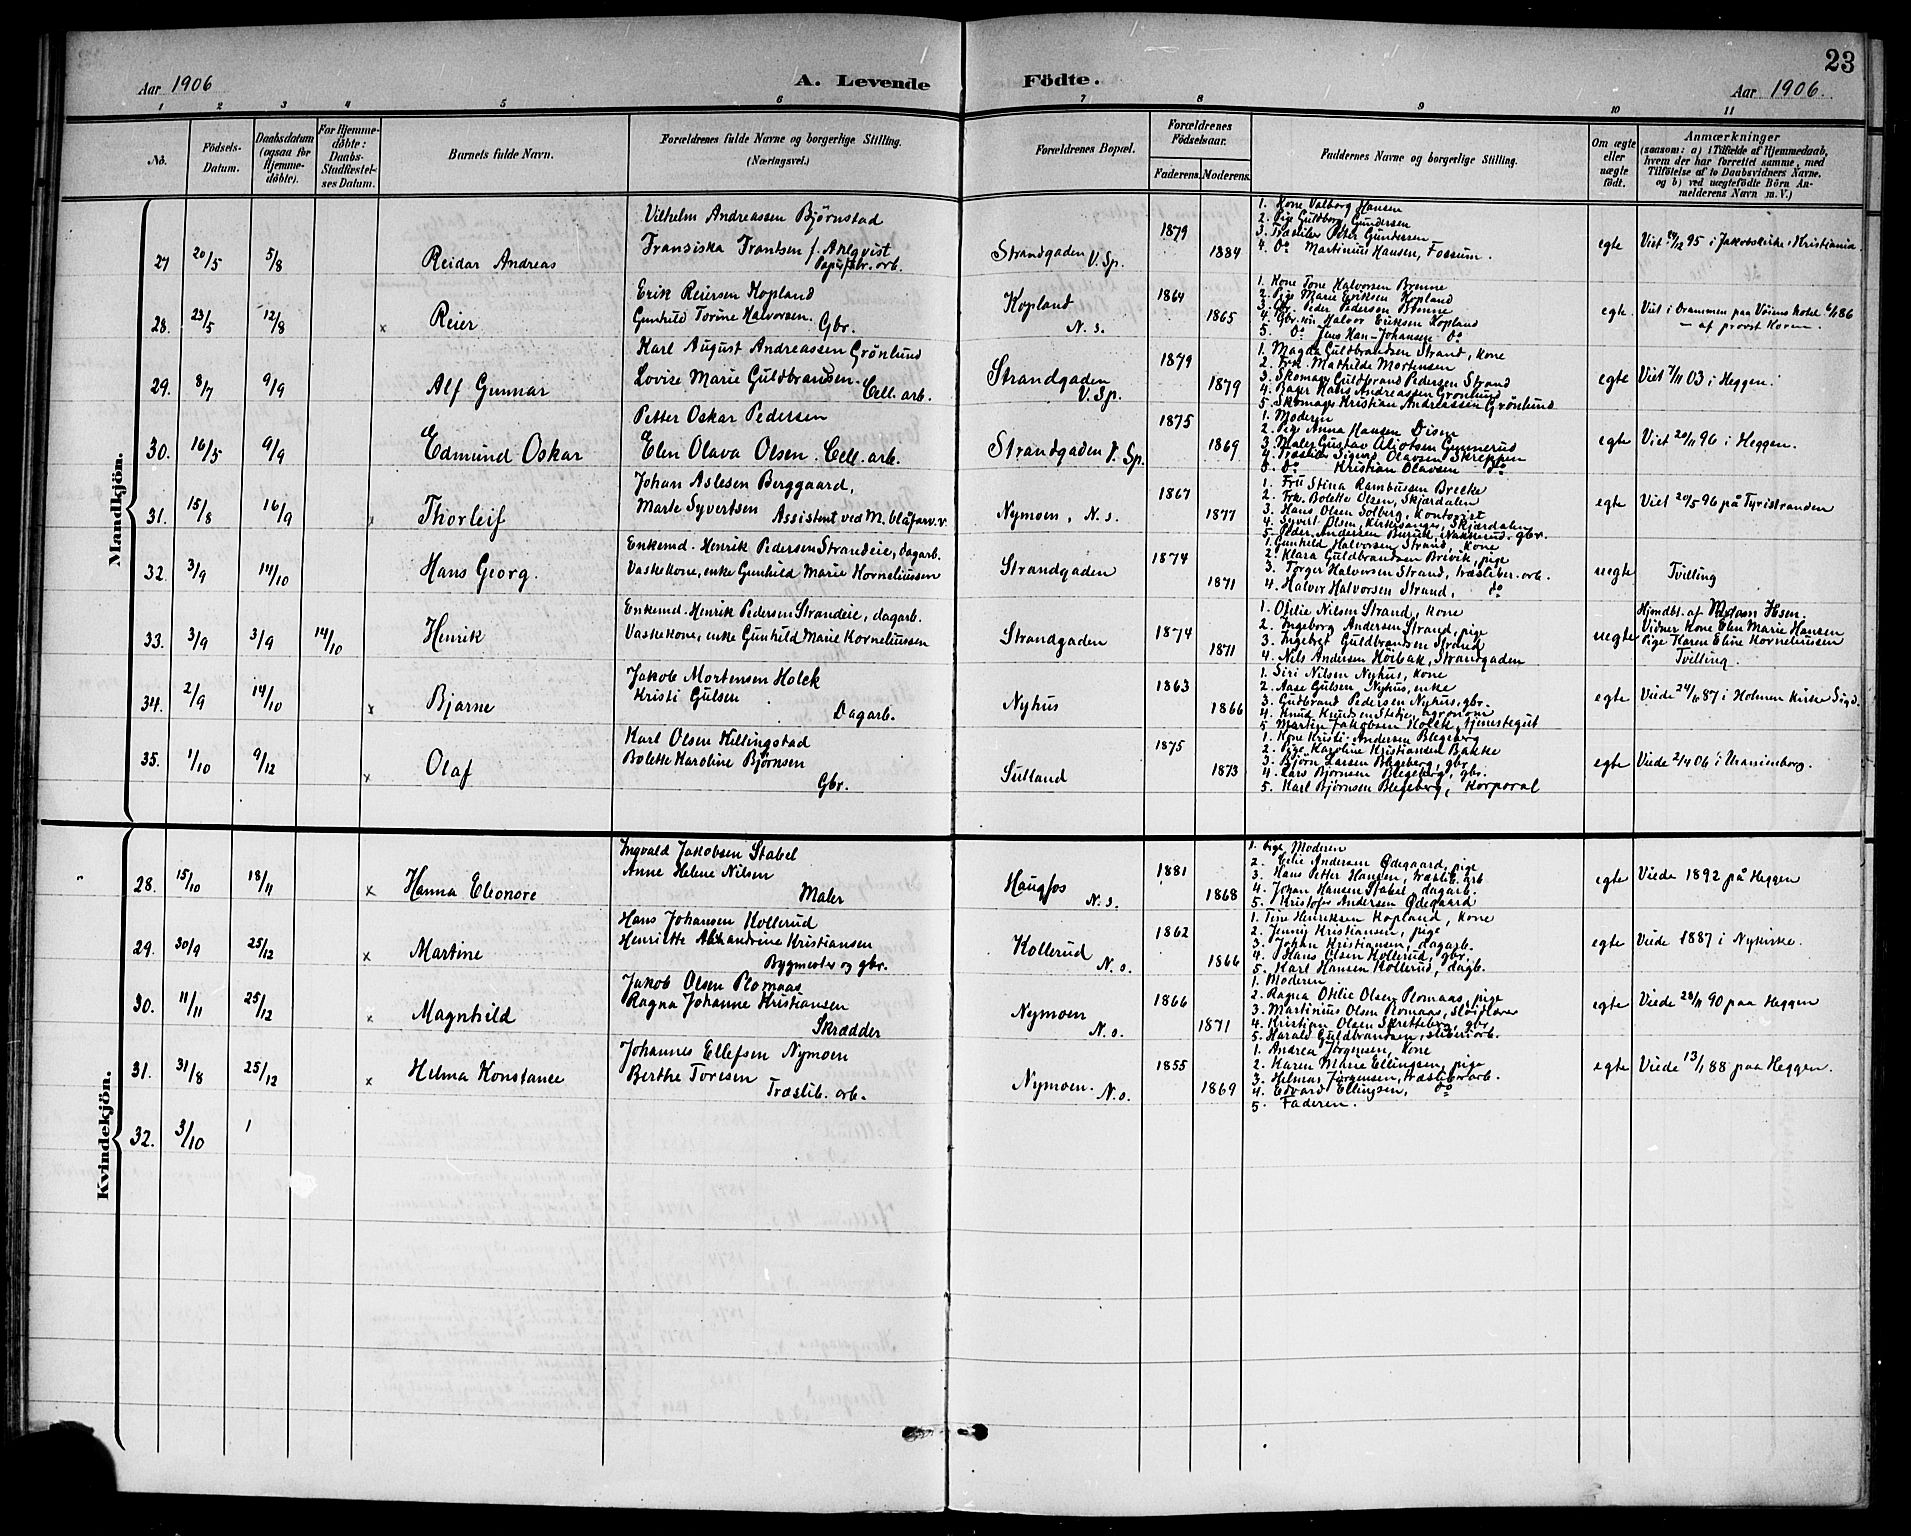 23
Aar 1906
A. Levende
Födte.
Aar 1906.
1 2 3 4 5 6 7 8 9 10 11
No.
Födsels-Datum.
Daabsdatum (ogsaa for Hjemme-døbte).
For Hjemme-døbte: Daabs-Stadfæstel-ses Datum.
Barnets fulde Navn.
Forældrenes fulde Navne og borgerlige Stilling. (Næringsvei.)
Forældrenes Bopæl.
Forældrenes Födselsaar.
Faderens. Moderens.
Faddernes Navne og borgerlige Stilling.
Om ægte eller uægte født.
Anmærkninger
(saasom: a) i Tilfælde af Hjemmedaab, hvem der har forrettet samme, med Tilföielse af to Daabsvidners Navne. og b) ved uægtefödte Börn An-melderens Navn m. V.)
Mandkjön.
27 20/5 5/8
Reidar Andreas
Vilhelm Andreassen Bjørnstad
Fransiska Frantsen f. Ahlqvist
Papirfabr. arb.
Strandgaden V. Sp.
1879
1884
1. Kone Valborg Hansen
2. Pige Guldborg Gundersen
3. Træsliber Peter Gundersen
4. Do Martinius Hansen, Fossum.
egte
Viet 24/12 95 i Jakobskirke i Kristiania
28. 23/5 12/8 x
Reier
Erik Reiersen Kopland
Gunhild Torine Halvorsen.
Gbr.
Kopland
N. s.
1864
1865
1. Kone Tone Halvorsen Brenne
2. Pige Marie Eriksen Kopland
3. Gbr. Peder Pedersen Brenne
4. Gbr. søn Halvor Eriksen Kopland
5. Do Jens Han-Johansen Do
egte
Viet i Drammen paa Vøiens hotel 6/1 86
- af provst Koren.
29. 8/7 9/9
Alf Gunnar
Karl August Andreassen Grönlund
Lovise Marie Guldbrandsen.
Cell. arb.
Strandgaden
V. Sp.
1879
1879
1. Magda Guldbrandsen Strand, kone
2. Frk. Mathilde Mortensen
3. Skomager Guldbrand Pedersen Strand
4. Bager Hans Andreassen Grönlund
5. Skomager Kristian Andreassen Grönlund
egte
Viet 7/11 03 i Heggen.
30. 16/5 9/9
Edmund Oskar
Petter Oskar Pedersen
Elen Olava Olsen. Cell. arb.
Strandgaden V. Sp.
1875
1869
1. Moderen
2. Pige Anna Hansen Disen
3. Maler Gustav Gunnerud
4. Træslib. Sigurd Olavsen Skreppen
5. Do Kristian Olavsen Do
egte
Viet 20/11 96 i Heggen.
31. 15/8 16/9 x
Thorleif
Johan Aslesen Berggaard,
Marte Syvertsen Assistent ved M. blåfarv. v.
Nymoen, N. s.
1867
1877
1. Fru Stina Rasmussen Brecke
2. Frk. Bolette Olsen, Skjærdalen
3. Hans Olsen Solberg, Kontorist
4. Syvert Olsen, Kirkesanger, Skjærdalen
5. Peder Andersen Burud, Nakkerud, gbr.
egte
Viet 20/5 96 på Tyristranden
32. 3/9 14/10
Hans Georg.
Enkemd. Henrik Pedersen Strandeie, dagarb.
Vaskekone, enke Gunhild Marie Korneliussen
Strandgaden
1874
1871
1. Gunhild Halvorsen Strand, kone
2. Klara Guldbrandsen Brevik, pige
3. Torger Halvorsen Strand, træsliber. arb.
4. Halvor Halvorsen Strand, do
uegte
Tvilling
33. 3/9 3/9 14/10
Henrik
Enkemd. Henrik Pedersen Strandeie, dagarb.
Vaskekone, enke Gunhild Marie Korneliussen
Strandgaden
1874
1871
1. Otilie Nilsen Strand, kone
2. Ingeborg Andersen Strand, pige
3. Ingebret Guldbrandsen Strand
4. Nils Andersen Höibak, Strandgaden
uegte
Hjmdbt. af Madam Ihsen.
Vidner Kone Elen Marie Hansen
Pige Karen Eline Korneliussen
Tvilling.
34. 2/9 14/10 x
Bjarne
Jakob Mortensen Holck
Kristi Gulsen
Dagarb.
Nyhus
1863
1866
1. Siri Nilsen Nyhus, kone
2. Aase Gulsen Nyhus, enke
3. Gudbrand Pedersen Nyhus, gbr.
4. Knud Knudsen Stedje, agronom
5. Martin Jakobsen Holck, tjenestegut
egte
Viede 24/11 87 i Holmen Kirke Sigd.
35. 1/10 9/12 x
Olaf
Karl Olsen Killingstad
Bolette Karoline Bjørnsen
Gbr.
Sülland
1875
1873
1. Kone Kristi Andersen Blegeberg
2. Pige Karoline Kristiansen Bakke
3. Bjørn Larsen Blegeberg, gbr.
4. Lars Bjørnsen Blegeberg, gbr.
5. Karl Bjørnsen Blegeberg, Korporal
egte
Viede 2/4 06 i Uranienborg.
Kvindekjön.
28. 15/10 18/11 x
Hanna Eleonore
Ingvald Jakobsen Stabel
Anne Helene Nilsen
Maler
Haugfos
N. s.
1881
1868
1. Pige Moderen
2. Celie Andersen Ødegaard, pige
3. Hans Petter Hansen, træslib. arb
4. Johan Hansen Stabel, dagarb.
5. Kristofer Andersen Ødegaard
egte
Viede 1892 på Heggen
29. 30/9 25/12 x
Martine
Hans Johansen Kollerud
Henriette Alexandrine Kristiansen
Bygmester og gbr.
Kollerud
N. o.
1862
1866
1. Tine Henriksen Kopland, kone
2. Jenny Kristiansen, pige
3. Johan Kristiansen, dagarb.
4. Hans Olsen Kollerud, gbr.
5. Karl Hansen Kollerud, dagb.
egte
Viede 1887 i Nykirke.
30. 11/11 25/12 x
Magnhild
Jakob Olsen Plomaas
Ragna Johanne Kristiansen
Skrædder
Nymoen
N. o.
1866
1871
1. Moderen
2. Ragna Otilie Olsen Plomaas, pige
3. Martinius Olsen Plomaas, Sløidlærer
4. Kristian Olsen Skretteberg, gbr.
5. Harald Guldbrandsen, sliberiarb.
egte
Viede 28/11 90 paa Heggen
31. 31/8 25/12 x
Helma Konstance
Johannes Ellefsen Nymoen
Berthe Toresen
Træslib. arb.
Nymoen. N. o.
1855
1869
1. Andrea Jørgensen, kone
2. Karen Marie Ellingsen, pige
3. Helmas Jørgensen, træsliberarb.
4. Edvard Ellingsen, do
5. Faderen.
egte
Viede 13/1 88 paa Heggen.
32. 3/10 1